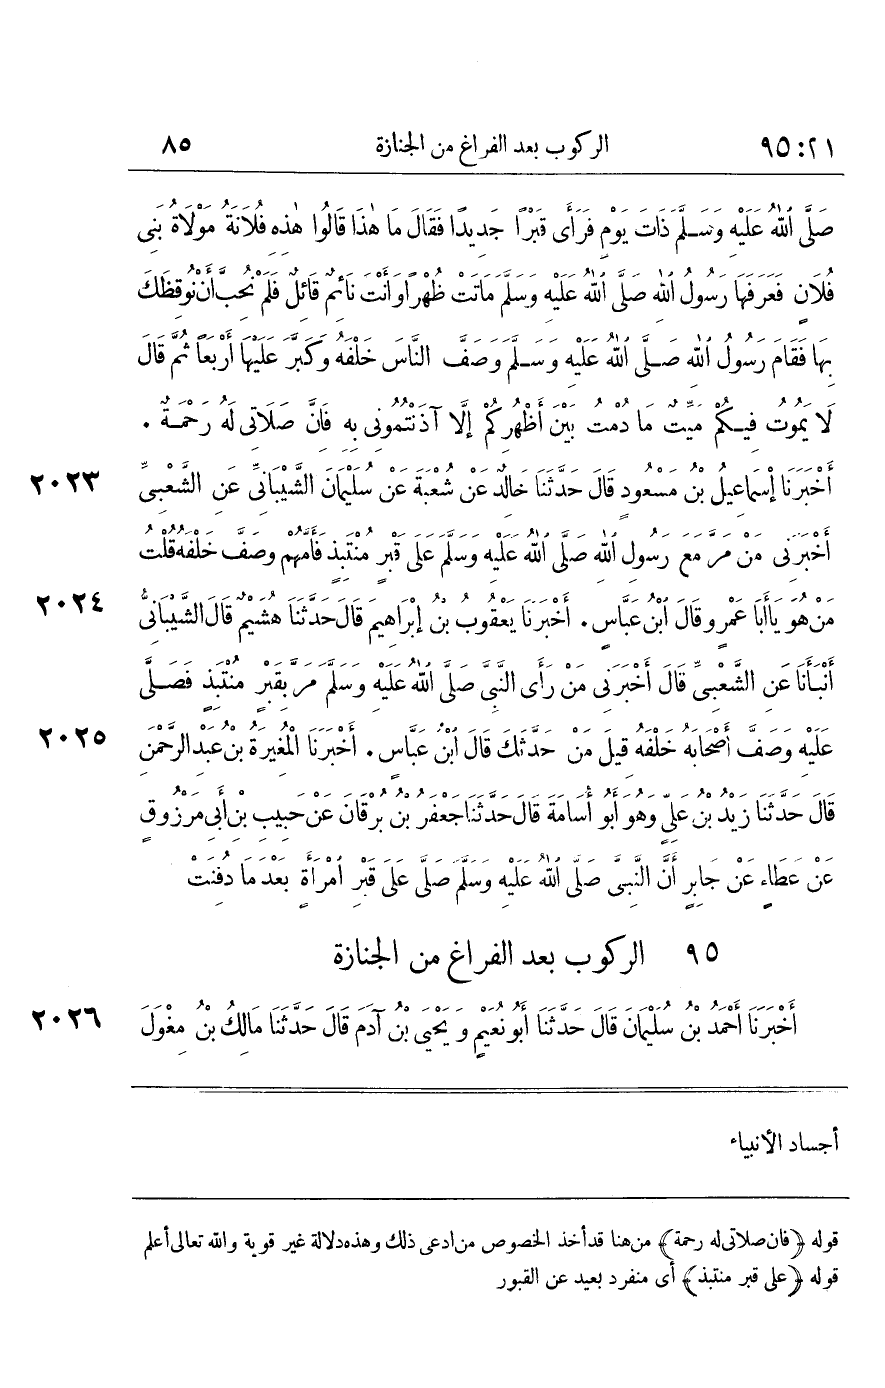 ٩٥:٢١ الركوب بعد الفراغ من الجنازة ٨٥
صَلَّى اللهُ عَلَيْهِ وَسَلَّمَ ذَاتَ يَوْمٍ فَرَأَى قَبْرًا جَدِيدًا فَقَالَ مَا هٰذَا قَالُوا هٰذِهِ فُلَانَةُ مَوْلَاةُ بَنِى
فُلَانٍ فَعَرَفَهَا رَسُولُ اللهِ صَلَّى اللهُ عَلَيْهِ وَسَلَّمَ مَاتَتْ ظُهْرًا وَأَنْتَ نَائِمٌ قَائِلٌ فَلَمْ نُحِبَّ أَنْ نُوقِظَكَ
بِهَا فَقَامَ رَسُولُ اللهِ صَلَّى اللهُ عَلَيْهِ وَسَلَّمَ وَصَفَّ النَّاسَ خَلْفَهُ وَكَبَّرَ عَلَيْهَا أَرْبَعًا ثُمَّ قَالَ
لَا يَمُوتُ فِيكُمْ مَيِّتٌ مَا دُمْتُ بَيْنَ أَظْهُرِكُمْ إِلَّا آذَنْتُمُونِى بِهِ فَانَّ صَلَاتِى لَهُ رَحْمَةٌ .
أَخْبَرَنَا إِسْمَاعِيلُ بْنُ مَسْعُودٍ قَالَ حَدَّثَنَا خَالِدٌ عَنْ شُعْبَةَ عَنْ سُلَيْمَانَ الشَّيْبَانِىِّ عَنِ الشَّعْبِىِّ ٢٠٢٣
أَخْبَرَنِى مَنْ مَرَّ مَعَ رَسُولِ اللهِ صَلَّى اللهُ عَلَيْهِ وَسَلَّمَ عَلَى قَبْرٍ مُنْتَبِذٍ فَأَمَّهُمْ وَصَفَّ خَلْفَهُ قُلْتُ
مَنْ هُوَ يَا أَبَا عَمْرٍو قَالَ ابْنُ عَبَّاسٍ . أَخْبَرَنَا يَعْقُوبُ بْنُ إِبْرَاهِيمَ قَالَ حَدَّثَنَا هُشَيْمٌ قَالَ الشَّيْبَانِىُّ ٢٠٢٤
أَنْبَأَنَا عَنِ الشَّعْبِىِّ قَالَ أَخْبَرَنِى مَنْ رَأَى النَّبِىَّ صَلَّى اللهُ عَلَيْهِ وَسَلَّمَ مَرَّ بِقَبْرٍ مُنْتَبِذٍ فَصَلَّى
عَلَيْهِ وَصَفَّ أَصْحَابَهُ خَلْفَهُ قِيلَ مَنْ حَدَّثَكَ قَالَ ابْنُ عَبَّاسٍ . أَخْبَرَنَا الْمُغِيرَةُ بْنُ عَبْدِ الرَّحْمٰنِ ٢٠٢٥
قَالَ حَدَّثَنَا زَيْدُ بْنُ عَلِىٍّ وَهُوَ أَبُو أُسَامَةَ قَالَ حَدَّثَنَا جَعْفَرُ بْنُ بُرْقَانَ عَنْ حَبِيبِ بْنِ أَبِى مَرْزُوقٍ
عَنْ عَطَاءٍ عَنْ جَابِرٍ أَنَّ النَّبِىَّ صَلَّى اللهُ عَلَيْهِ وَسَلَّمَ صَلَّى عَلَى قَبْرِ امْرَأَةٍ بَعْدَ مَا دُفِنَتْ
٩٥ الركوب بعد الفراغ من الجنازة
أَخْبَرَنَا أَحْمَدُ بْنُ سُلَيْمَانَ قَالَ حَدَّثَنَا أَبُو نُعَيْمٍ وَيَحْيَى بْنُ آدَمَ قَالَ حَدَّثَنَا مَالِكُ بْنُ مِغْوَلَ ٢٠٢٦
أجساد الأنبياء
قوله ﴿فان صلاتى له رحمة﴾ من هنا قد أخذ الخصوص من ادعى ذلك وهذه دلالة غير قوية والله تعالى أعلم
قوله ﴿على قبر منتبذ﴾ أى منفرد بعيد عن القبور